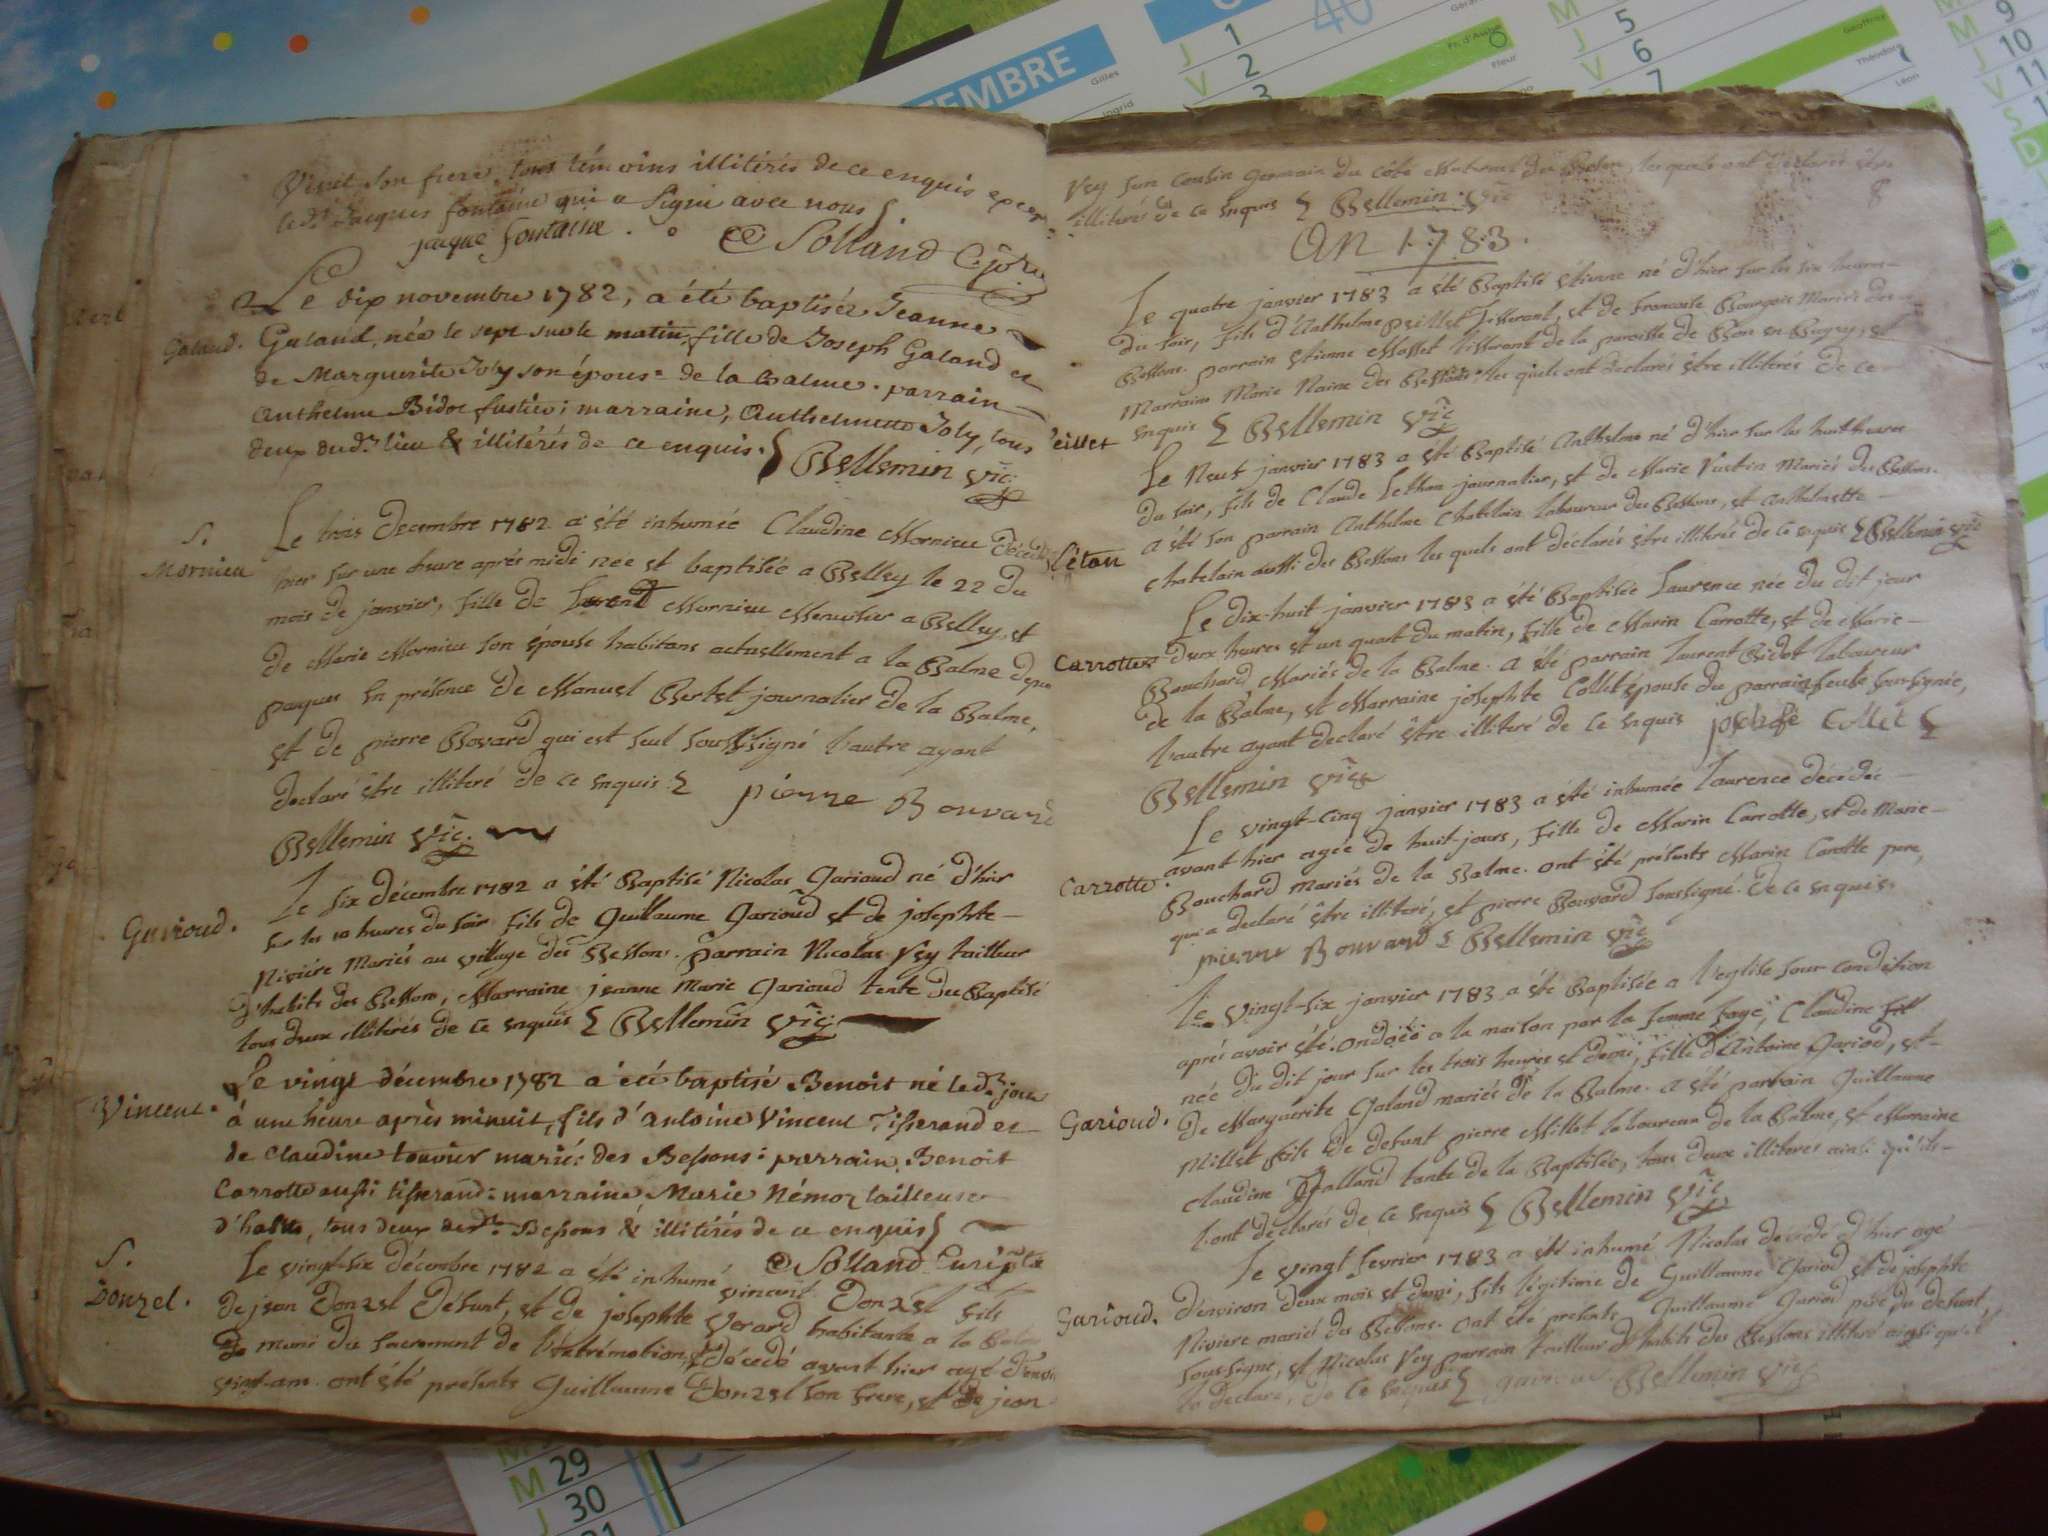 Vivit son frere, tous témoins illitérés de ce enquis excep
le dr. Jacques fontaine qui a signé avec nous
jacque fontaine. Solland
Le dix novembre 1782, a été baptisée Jeanne
Galand. Galand, née le sept sur le matin, fille de Joseph Galand et
de Marguerite Joly son épouse de la Balme. parrain
Anthelme Bidot fustier; marraine, Anthelmette Joly, tous
deux dud. lieu & illitérés de ce enquis. Bellemin vic.
S.
Mornieu
Le trois decembre 1782 a été inhumée Claudine Mornieu décédée
hier sur une heure après midi née et baptisée a Belley le 22 du
mois de janvier, fille de Laurent Mornieu Menuisier a Belley, et
de Marie Mornieu son épouse habitans actuellement a la Balme depu
paques En présence de Manuel Bertet journalier de la Balme,
et de pierre Bovard qui est seul soussigné l'autre ayant
declaré être illiteré de ce Enquis pierre Bouvard
Bellemin vic.
Garioud.
Le six décembre 1782 a été Baptisé Nicolas Garioud né d'hier
sur les 10 heures du soir fils de Guillaume Garioud et de josephte
Riviére Mariés au village des Bessons. Parrain Nicolas Vey tailleur
d'habits des Bessons, Marraine jeanne Marie Garioud tente du Baptisé
tous deux illiterés de ce Enquis Bellemin vic.
Vincent.
Le vingt décembre 1782 a été baptisé Benoit né led. jour
à une heure après minuit, fils d'antoine Vincent Tisserand et
de Claudine touvier mariés des Bessons: parrain Benoit
Carrotte aussi tisserand: marraine Marie Némoz tailleuse
d'habits, tous deux desd. Bessons & illitérés de ce enquis
Solland
S.
Donzel.
Le vingt-six décembre 1782 a été inhumé vincent Donzel fils
de jean Donzel Défunt, et de josephte Verard habitante a la Balme
muni du sacrement de l'extrémotion, décédé avant hier agé d'envi
vingt-ans. ont été présents Guillaume Donzel son frere, et de jean
Vey son cousin germain du côté Maternel du Defun, lesquels ont declarés être
illiterés de ce Enquis Bellemin vic
8
AN 1783.
Le quatre janvier 1783 a été Baptisé étienne né d'hier sur les six heures
du soir, fils d'Anthelme peillet Tisserant, et de Francoise Bourgois Mariés des
Bessons. parrain étienne Massot tisserant de la paroisse de Bon en Bugey, et
Marraine Marie Naine des Bessons lesquels ont declarés être illiterés de ce
Enquis Bellemin vic
eillet
Le Neuf janvier 1783 a été Baptisé Anthelme né d'hier sur les huit heures
du soir, fils de Claude Lethan journalier, et de Marie Vustin Mariés des Bessons.
Létan
a été son parrain Anthelme Chatelain laboureur des Bessons, et Anthelmette
Chatelain aussi des Bessons les quels ont déclarés être illiterés de ce Enquis Bellemin vic
Le dix-huit janvier 1783 a été Baptisée Laurence née du dit jour
Carrotte
deux heures et un quart du matin, fille de Marin Carrotte, et de Marie
Bouchard Mariés de la Balme. a été parrain laurent Bidot laboureur
de la Balme, et Marraine josephte Collet épouse du parrain seule soussignée,
l'autre ayant declaré être illiteré de ce Enquis josephe Collet
Bellemin vic
Le vingt-cinq janvier 1783 a été inhumée Laurence décédée
Carrotte.
avant hier agée de huit jours, fille de Marin Carrotte, et de Marie
Bouchard mariés de la Balme. ont été présents Marin Carotte pere,
qui a declaré être illiteré, et pierre Bouvard soussigné. de ce Enquis
pierre Bouvard Bellemin vic
Le vingt-six janvier 1783 a été Baptisée a l'eglise sour condition
aprés avoir été ondoiée a la maison par la femme sage, Claudine
née du dit jour sur les trois heures et demi, fille d'Antoine Gariod, et
Garioud.
de Marguerite Galand mariés de la Balme. a été parrain Guillaume
Millet fils de defunt pierre Millet laboureur de la Balme, et Marraine
Claudine Galland tante de la Baptisée, tous deux illiteres ainsi qu'ils
l'ont declarés de ce Enquis Bellemin vic
Le vingt fevrier 1783 a été inhumé Nicolas décédé d'hier agé
Garioud.
d'environ deux mois et demi, fils légitime de Guillaume Gariod et de josephte
Riviere mariés des Bessons. ont été présents Guillaume Gariod pere du defunt,
soussigné, et Nicolas Vey parrain tailleur d'habits des Bessons illiteré ainsi qu'il
la declaré, de ce Enquis Bellemin vic
TEMBRE
Gilles
Ingrid
J 1
V 2
3
40
Fleur
M 5
J 6
V 7
Geoffroy
Théodore
Léon
M 9
J 10
V 11
S 1
D
M 29
J 30
31